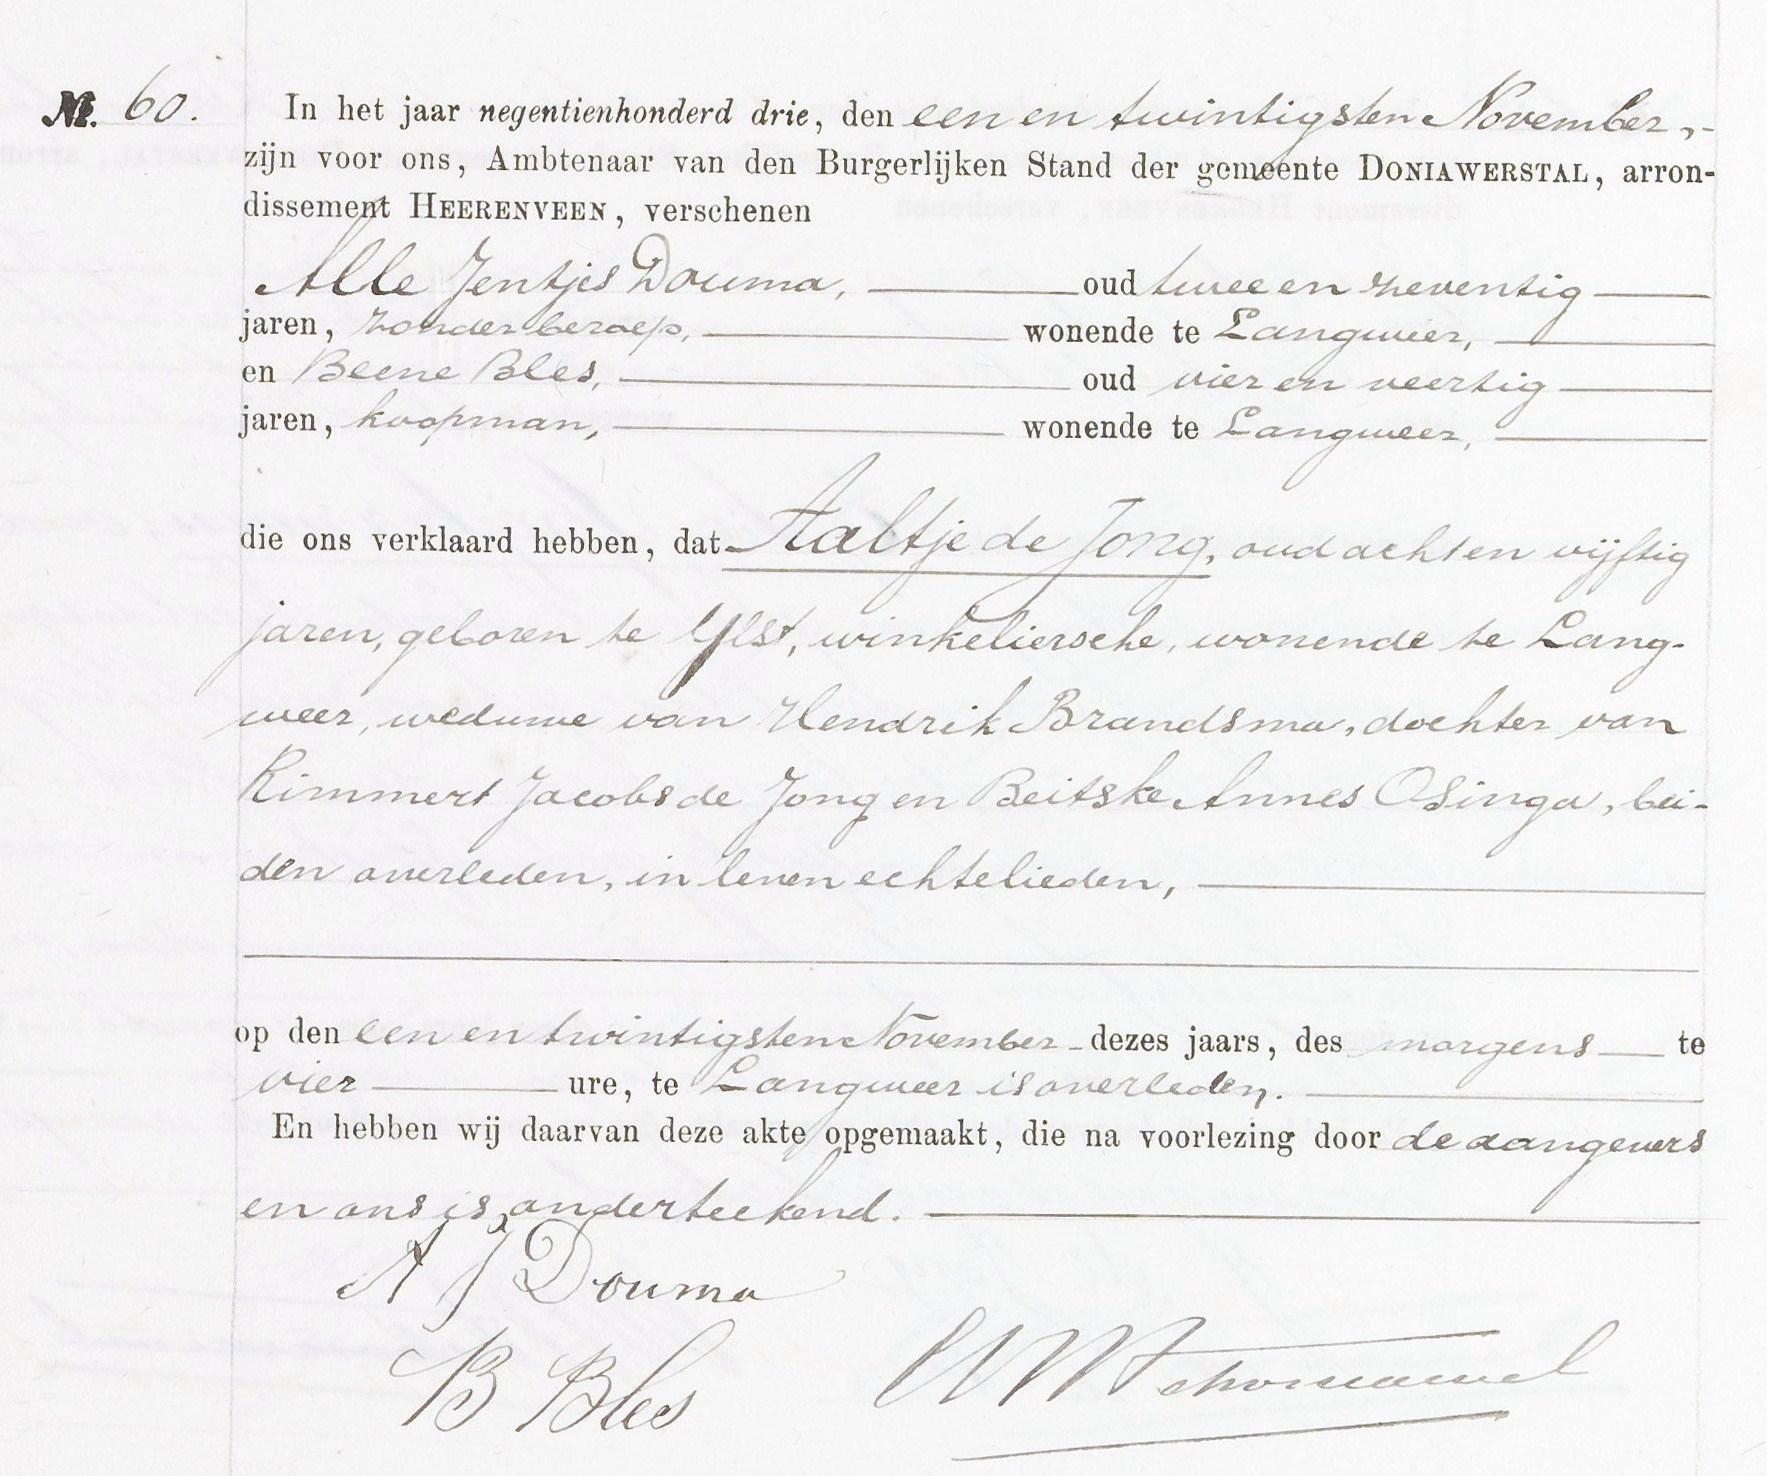 No. 60. In het jaar negentienhonderd drie, den een en twintigsten November,-
zijn voor ons, Ambtenaar van den Burgerlijken Stand der gemeente DONIAWERSTAL, arron-
dissement HEERENVEEN, verschenen
Alle Jentjes Douma, oud twee en zeventig
jaren, zonder beroep, wonende te Langweer,
en Beene Bles, oud vier en veertig
jaren, koopman, wonende te Langweer,
die ons verklaard hebben, dat Aaltje de Jong, oud acht en vijftig
jaren, geboren te Ylst, winkeliersche, wonende te Lang-
weer, weduwe van Hendrik Brandsma, dochter van
Rimmert Jacobs de Jong en Beitske Annes Osinga, bei-
den overleden, in leven echtelieden,
op den een en twintigsten November dezes jaars, des morgens te
vier ure, te Langweer is overleden.
En hebben wij daarvan deze akte opgemaakt, die na voorlezing door de aangevers
en ons is onderteekend.
A J Douma
B Bles